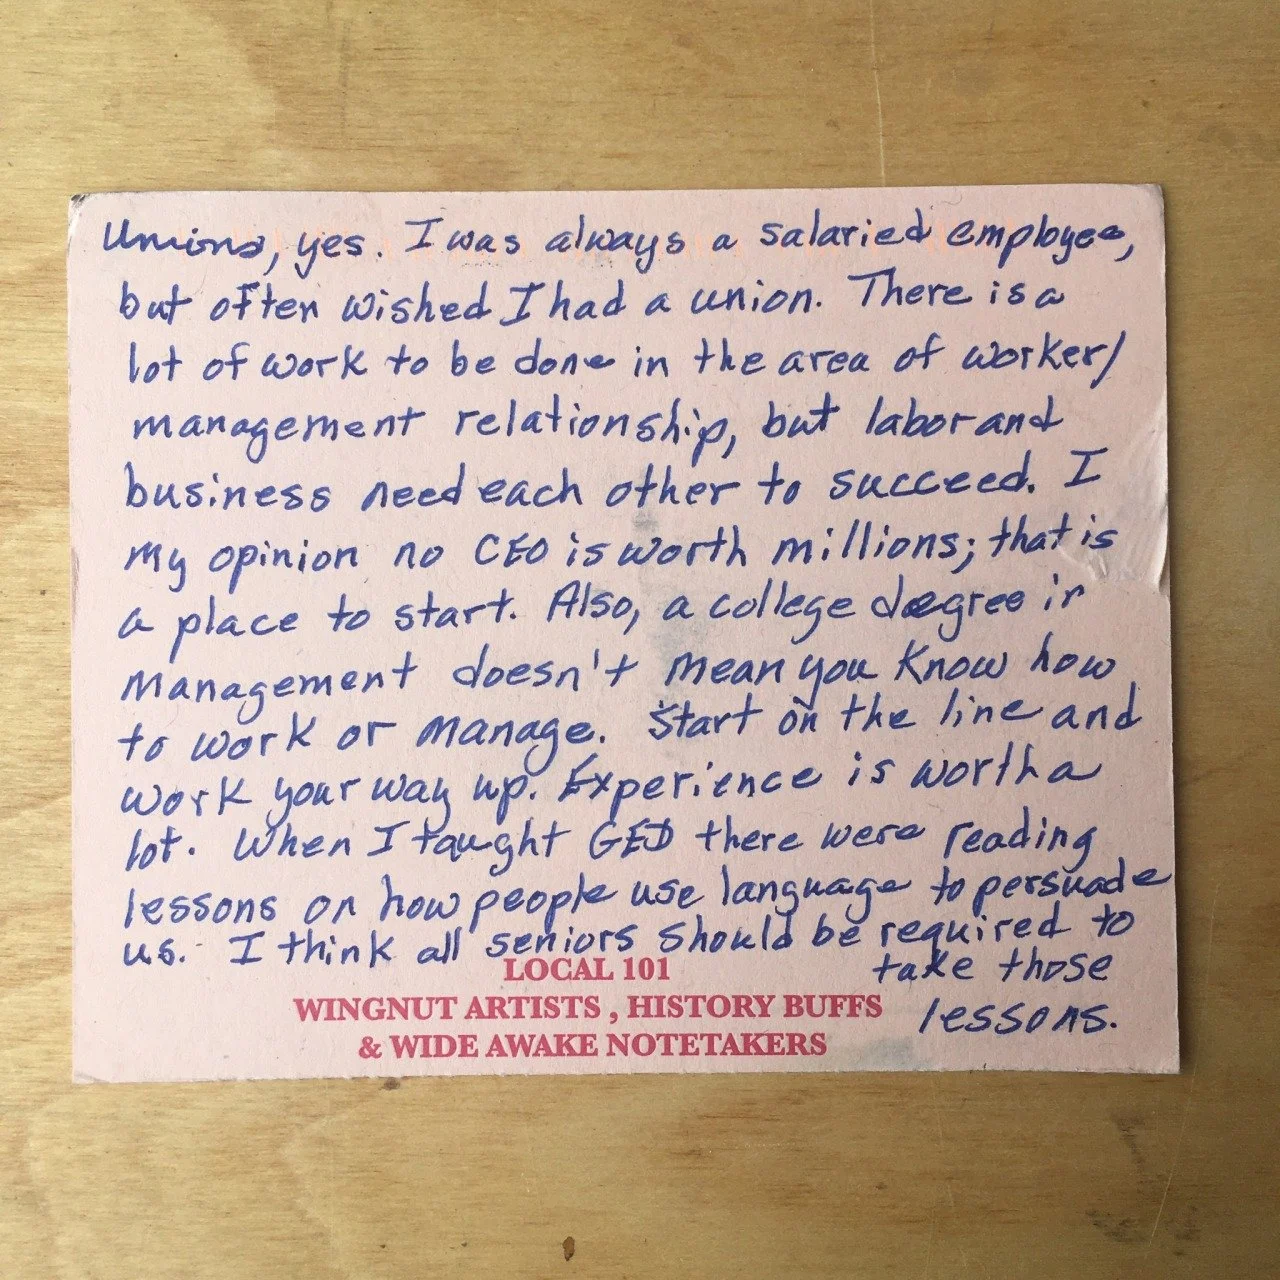 Unions, yes. I was always a salaried employee,
but often wished I had a union. There is a
lot of work to be done in the area of worker/
management relationship, but labor and
business need each other to succeed. I
my opinion no CEO is worth millions; that is
a place to start. Also, a college degree in
management doesn't mean you know how
to work or manage. Start on the line and
work your way up. Experience is worth a
lot. When I taught GED there were reading
lessons on how people use language to persuade
us. I think all seniors should be required to
take those
lessons.
LOCAL 101
WINGNUT ARTISTS , HISTORY BUFFS
& WIDE AWAKE NOTETAKERS